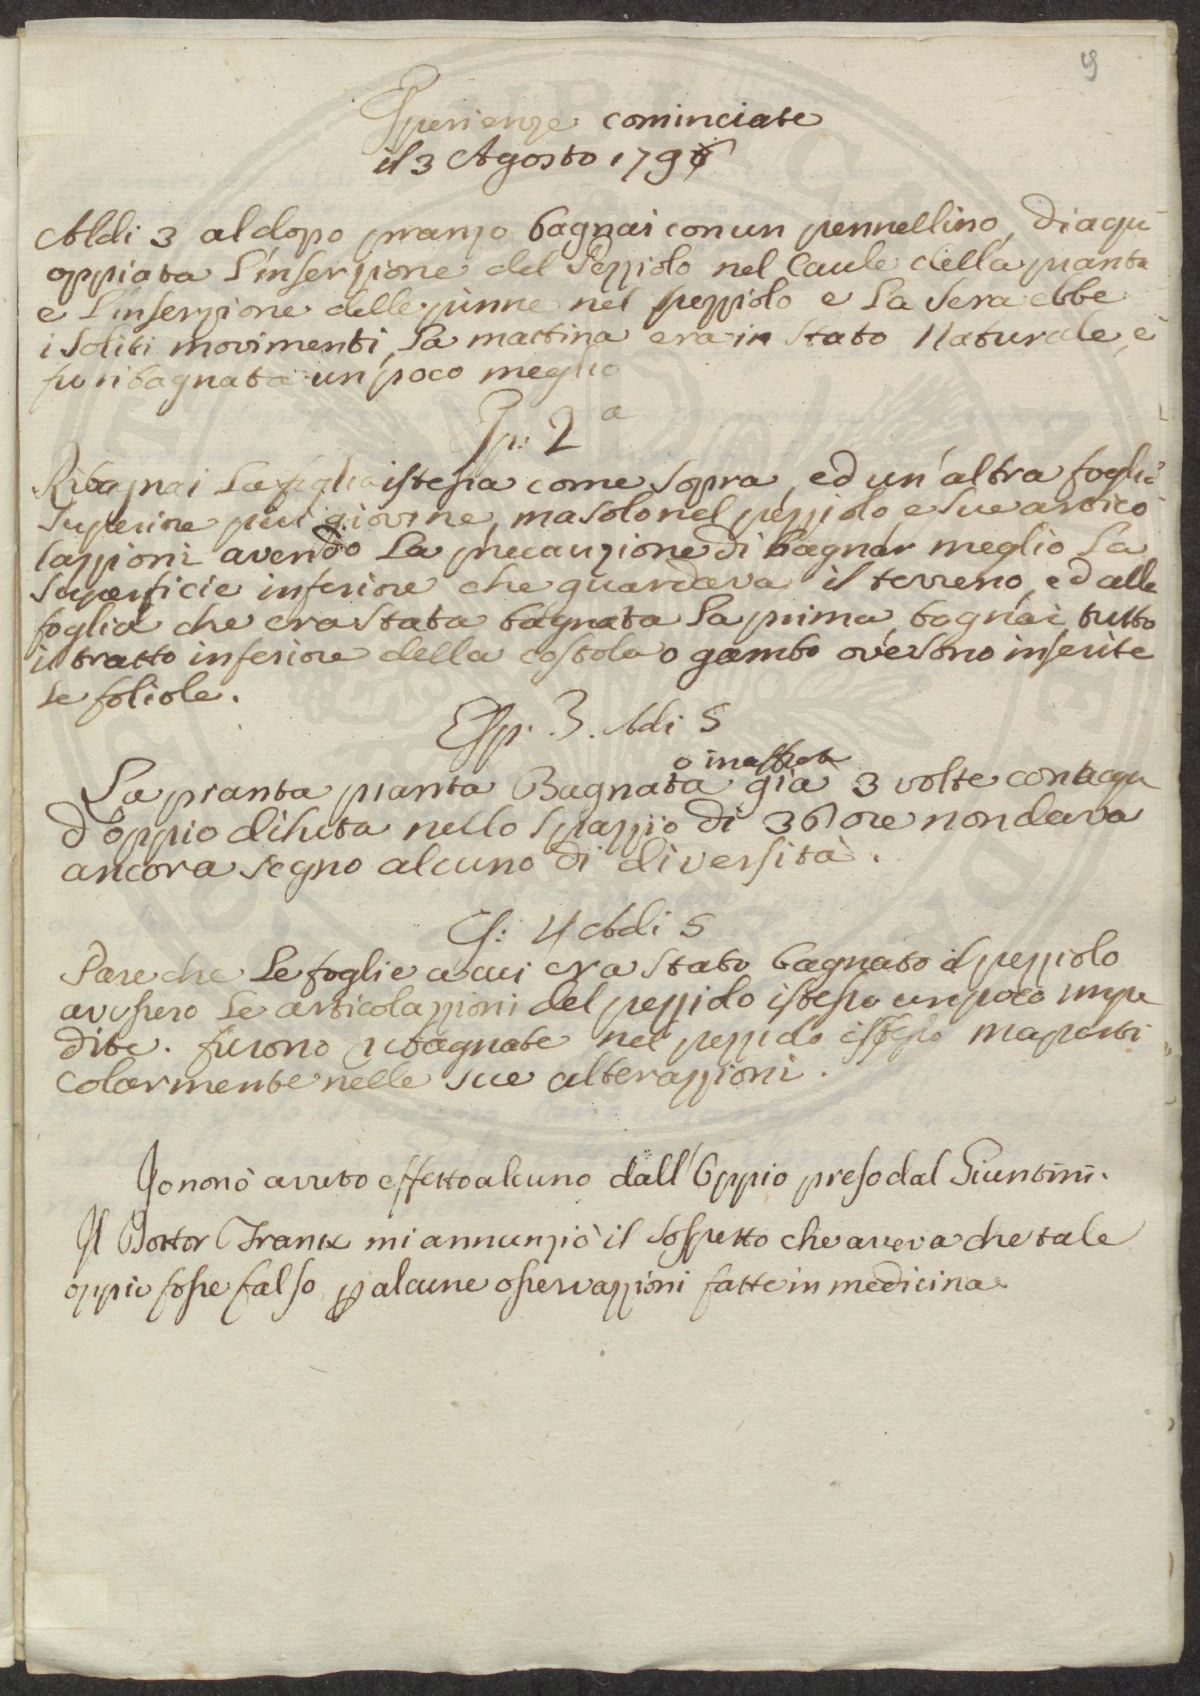 9
Esperienze cominciate
il 3 Agosto 179
Aldi 3 al dopo pranzo bagnai con un pennellino, di aqu
oppiata l'inserzione del Pezziolo nel Caule della pianta
e l'inserzione delle pinne nel pezziolo e la sera ebbe
i soliti movimenti, la mattina era in stato Naturale, e
fu ribagnata un poco meglio
Esp: 2a
Ribagnai la foglia istessa come sopra, ed un'altra foglia
superiore piu giovine, ma solo nel pezziolo, e sue artico
lazzioni avendo la precauzione di bagnar meglio la
superficie inferiore che guardava il terreno, ed alla
foglia che era stata bagnata la prima bagnai tutto
il tratto inferiore della costola o gambo ove sono inserite
le foliole.
Esp. 3. Adi 5
o inaffiata
La pianta pianta Bagnata già 3 volte con acqu
d'oppio diluta nello spazzio di 36 ore non dava
ancora segno alcuno di diversità.
Es: 4 Adi 5
Pare che le foglie a cui era stato bagnato il pezziolo
avessero le articolazzioni del pezziolo istesso un poco impe
dite. furono ribagnate nel pezziolo istesso ma parti
colarmente nelle sue alterazzioni.
Io non ò avuto effetto alcuno dall'Oppio preso dal Giuntini.
Il Dottor Frank mi annunziò il sospetto che aveva che tale
oppio fosse falso p alcune osservazzioni fatte in medicina.